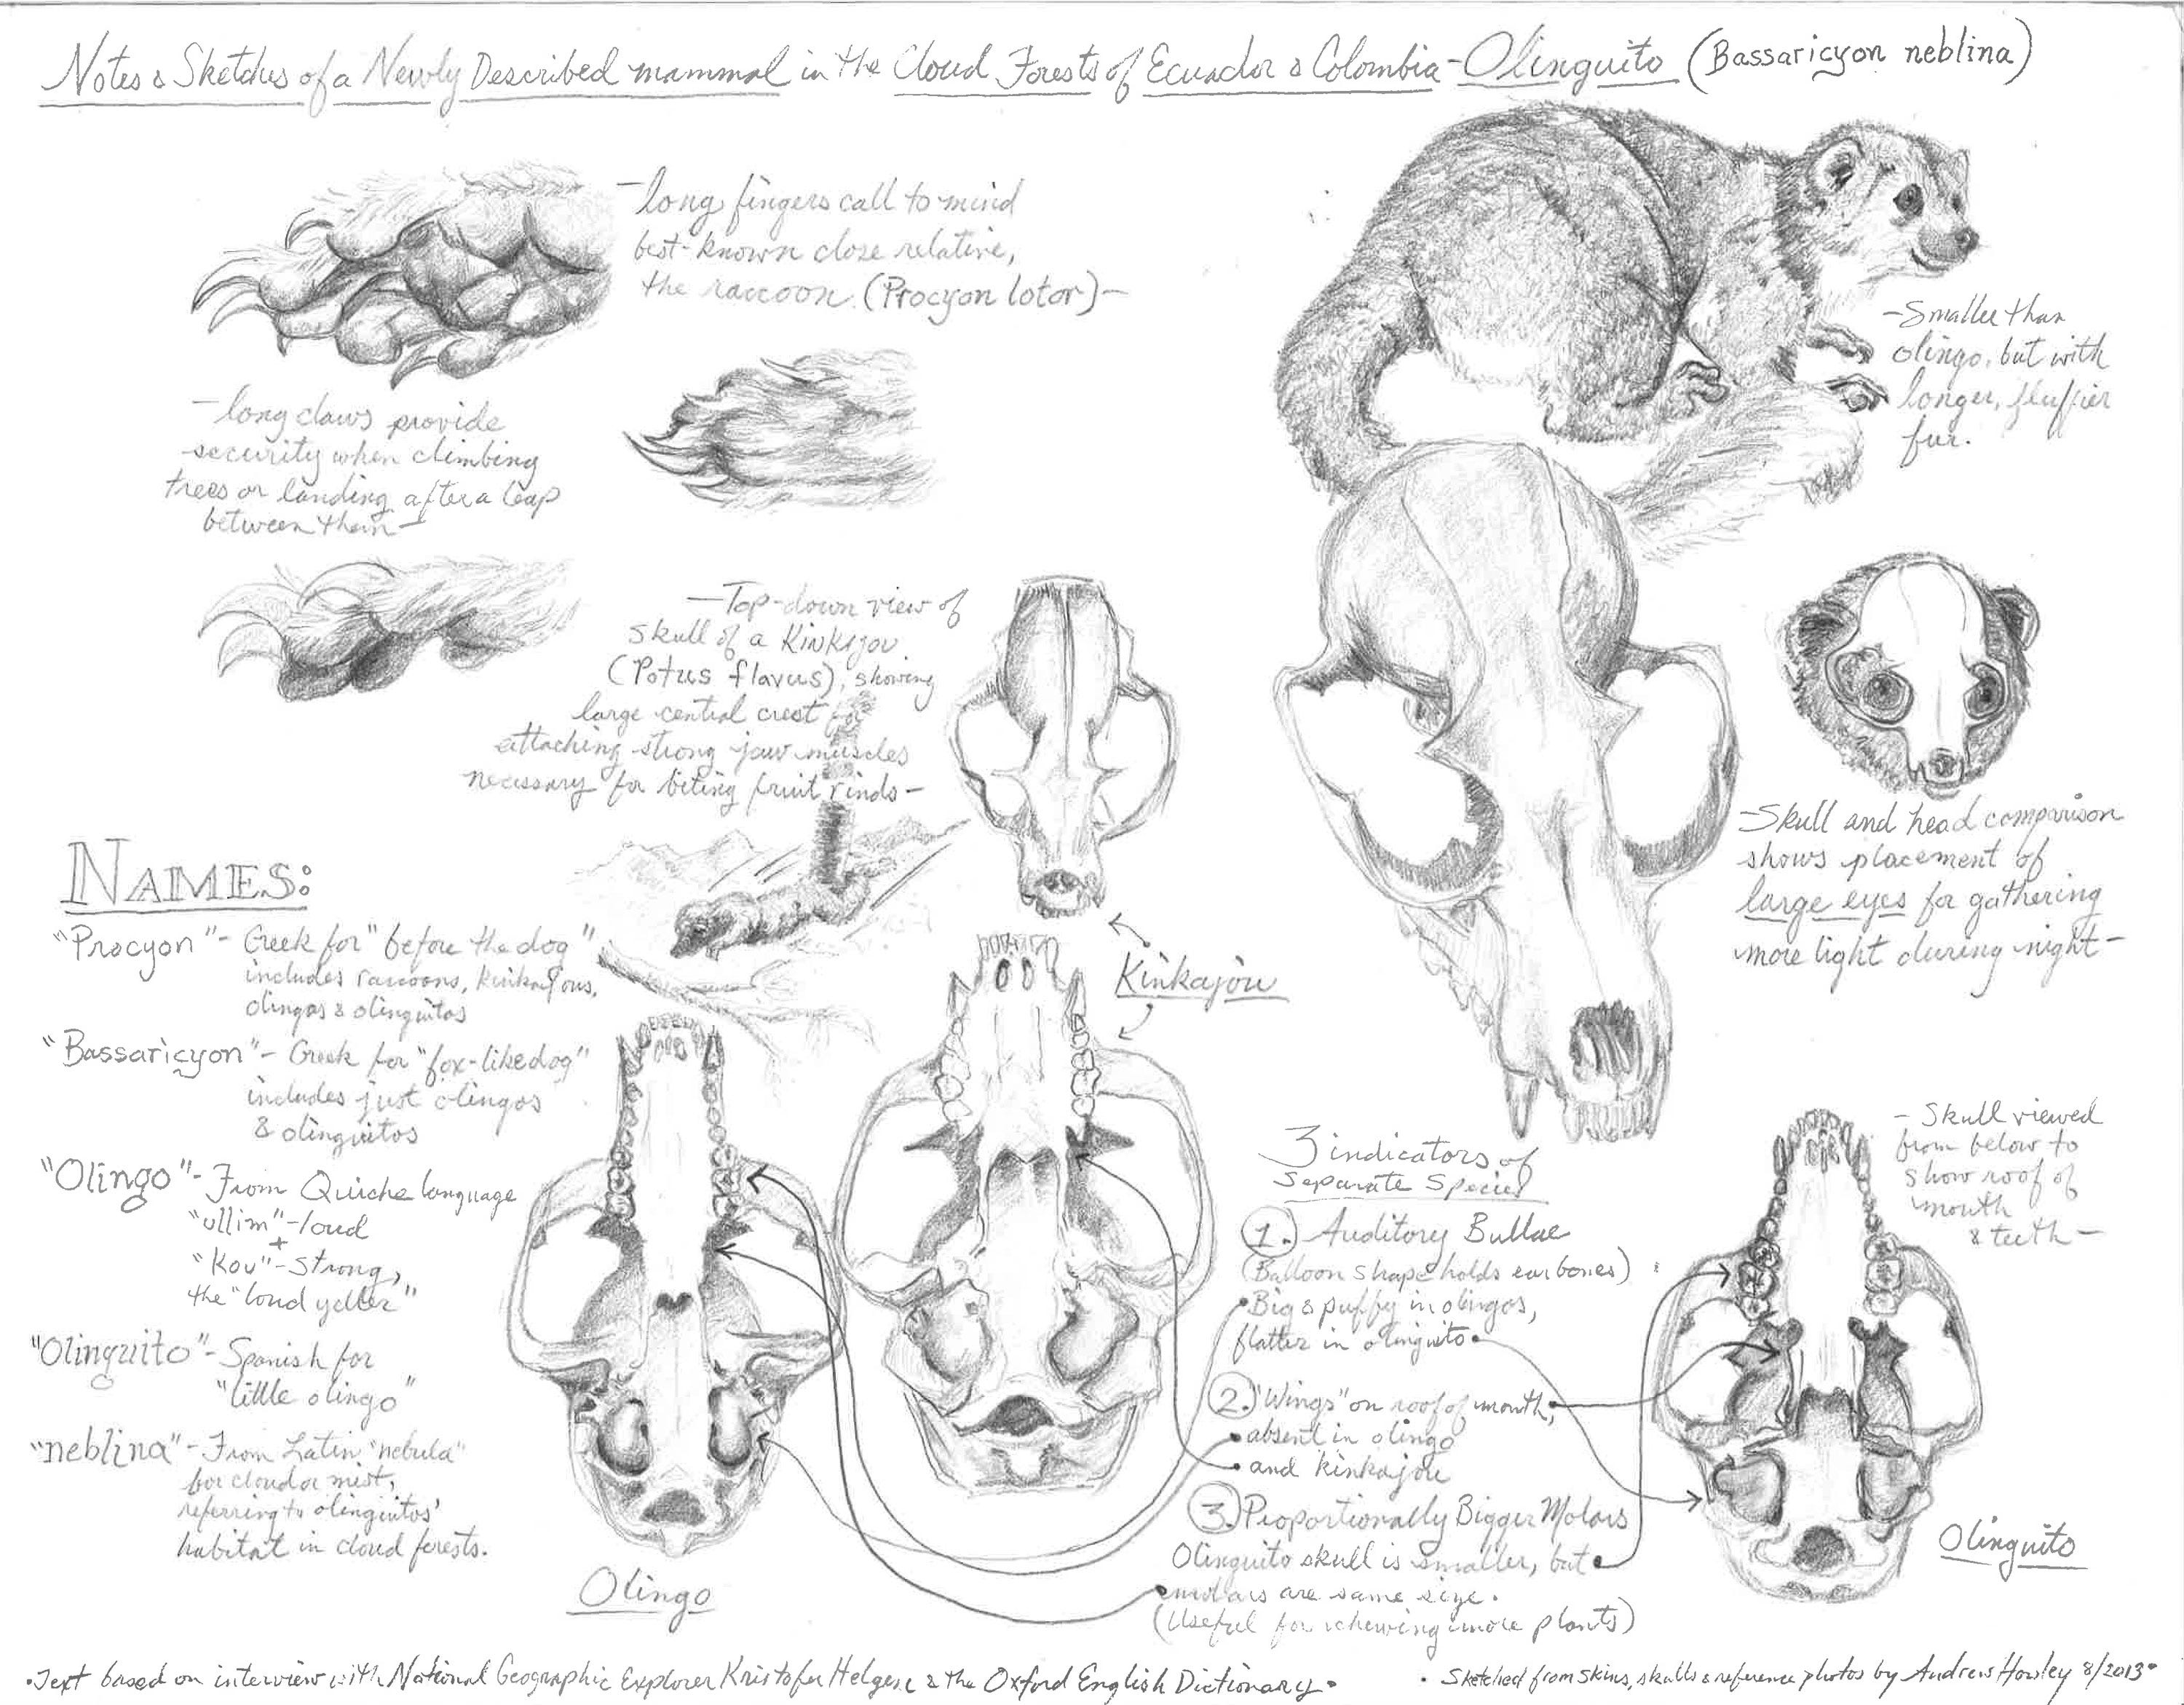 Notes & Sketches of a Newly Described mammal in the Cloud Forests of Ecuador & Colombia - Olinguito (Bassaricyon neblina)
- long fingers call to mind
best-known close relative,
the raccoon. (Procyon lotor) -
- Smaller than
olingo, but with
longer, fluffier
fur.
- long claws provide
security when climbing
trees or landing after a leap
between them -
- Top-down view of
skull of a Kinkajou
(Potus flavus), showing
large central crest for
attaching strong jaw muscles
necessary for biting fruit rinds -
- Skull and head comparison
shows placement of
large eyes for gathering
more light during night -
NAMES:
"Procyon" - Greek for "before the dog"
includes raccoons, kinkajous,
olingos & olinguitos
"Bassaricyon" - Greek for "fox-like dog"
includes just olingos
& olinguitos
"Olingo" - From Quiche language
"ullim" - loud
+
"Kou" - strong,
the "loud yeller"
"Olinguito" - Spanish for
"little olingo"
"neblina" - From Latin "nebula"
for cloud or mist,
referring to olinguitos'
habitat in cloud forests.
Kinkajou
Olingo
3 indicators of
Separate Species
1. Auditory Bullae
(Balloon shape holds ear bones)
• Big & puffy in olingos,
flatter in olinguito •
2. "Wings" on roof of mouth,
• absent in olingo
• and kinkajou
3. Proportionally Bigger Molars
Olinguito skull is smaller, but •
• molars are same size.
(Useful for chewing more plants)
- Skull viewed
from below to
show roof of
mouth
& teeth -
Olinguito
• Text based on interview with National Geographic Explorer Kristofer Helgen & the Oxford English Dictionary. •
• Sketched from skins, skulls & reference photos by Andrew Howley 8/2013 •